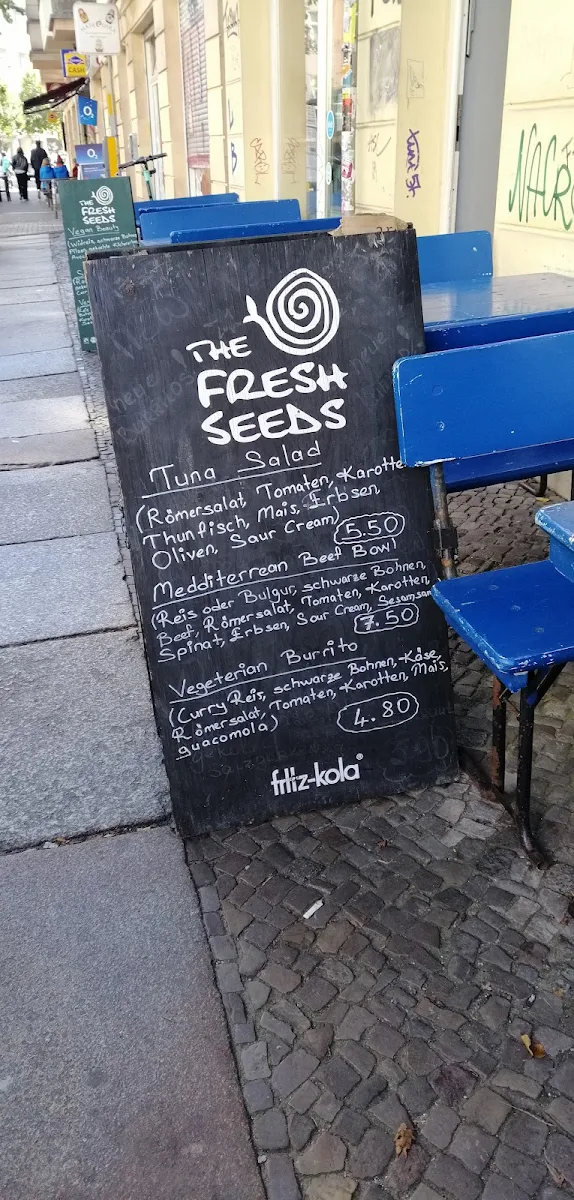 CASH
O₂
O₂
THE
FRESH
SEEDS
Vegan Beauty
THE
FRESH
SEEDS
Tuna Salad
(Römersalat, Tomaten, Karotte
Thunfisch, Mais, Erbsen
Oliven, Saur Cream)
5.50
Medditerrean Beef Bowl
(Reis oder Bulgur, schwarze Bohnen,
Beef, Römersalat, Tomaten, Karotten,
Spinat, Erbsen, Sour Cream, Sesamsam
7.50
Vegeterian Burrito
(Curry Reis, schwarze Bohnen, Käse,
Römersalat, Tomaten, Karotten, Mais,
guacomola)
4.80
fritz-kola®